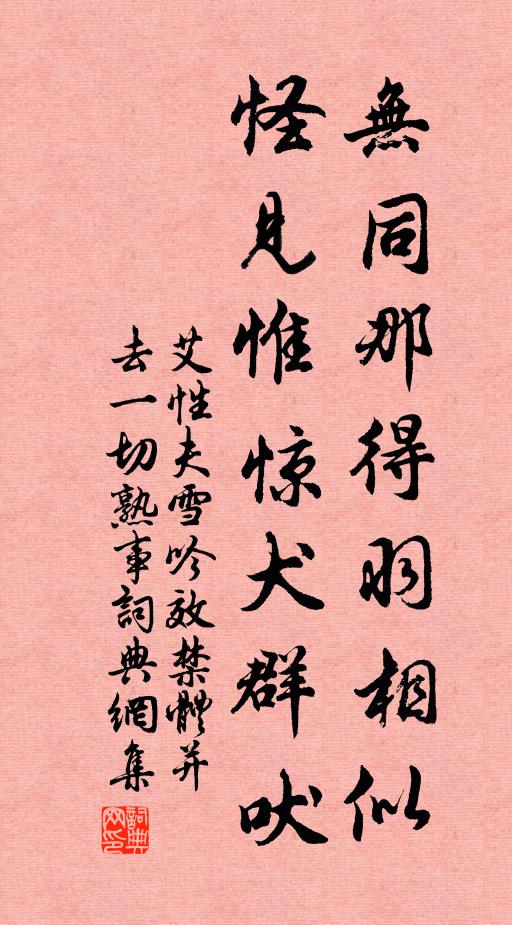 無同那得羽相似
怪見惟惊犬群吠
艾性夫雪吟效禁體并
去一切熟事詞典網集
詞典网印